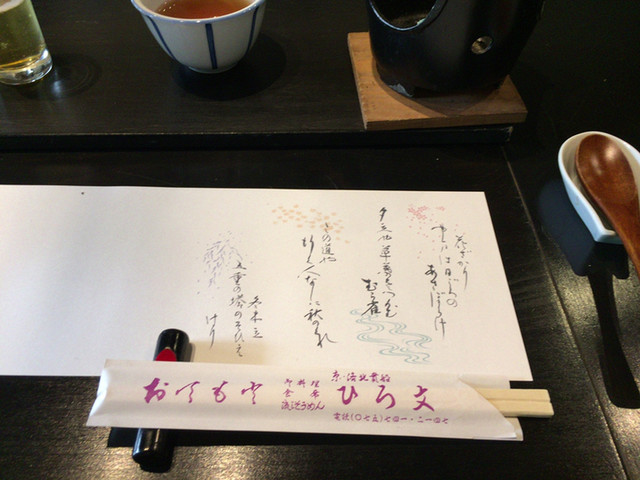 花ざかり
山は日ごろの
あさぼらけ
夕立や草葉をつかむ
むら雀
この道や
行人なしに秋のくれ
冬木立
五重の塔のそびえ
けり
おてもと
京・洛北貴船
ひろ文
電話(〇七五)七四一・二一四七
料理
流しそうめん